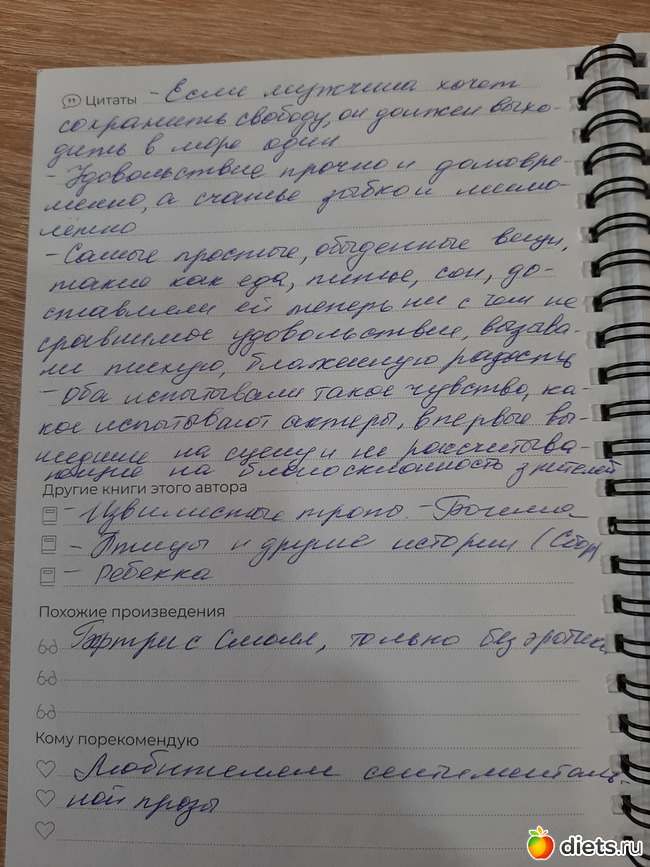 Цитаты - Если мужчина хочет
сохранить свободу, он должен выхо-
дить в море один
- Удовольствие прочно и долговре-
менно, а счастье зыбко и мимо-
лётно
- Самые простые, обыденные вещи,
такие как еда, питье, сон, до-
ставляли ей теперь ни с чем не
сравнимое удовольствие, вызыва-
ли тихую, блаженную радость
- Оба испытывали такое чувство, ка-
кое испытывают актеры, впервые вы-
шедшие на сцену и не рассчитыва-
ющие на благосклонность зрителей
Другие книги этого автора
- Извилистые тропы - Богема
- Птицы и другие истории (Сбор)
- Ребекка
Похожие произведения
Бертрис Смолл, только без эротики
Кому порекомендую
Любителям сентименталь-
ной прозы
diets.ru